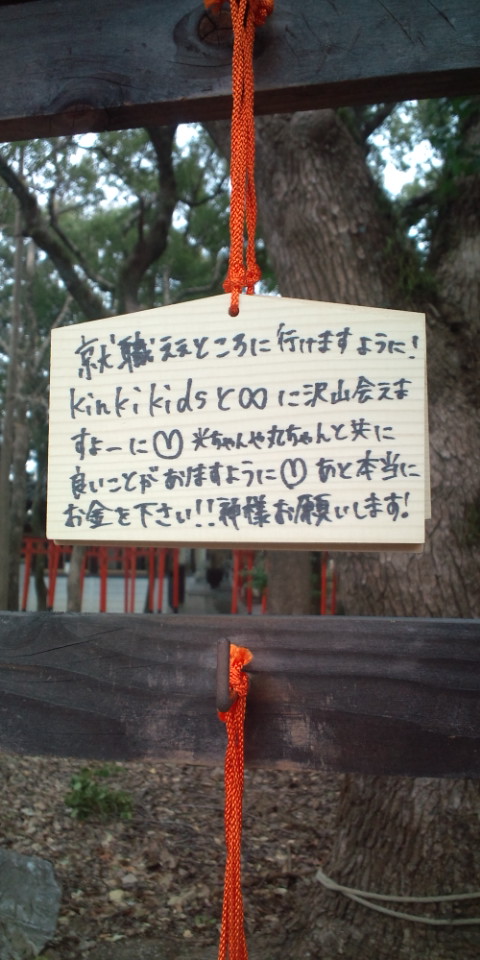 就職ええところに行けますように!
kinki kidsと∞に沢山会えま
すよーに♡光ちゃんや丸ちゃんと共に
良いことがおけますように♡あと本当に
お金を下さい!!神様お願いします!